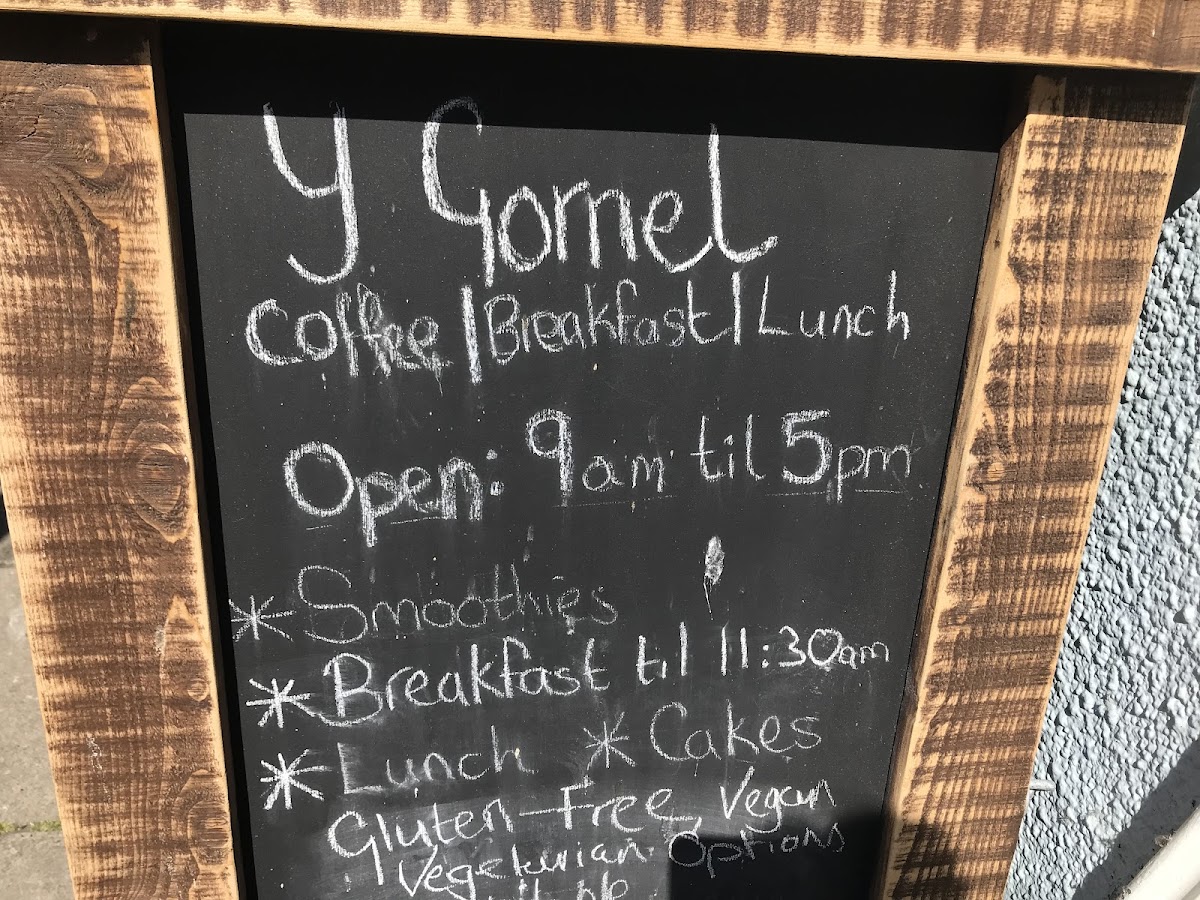 Y Gornel
Coffee | Breakfast | Lunch
Open: 9am til 5pm
* Smoothies
* Breakfast til 11:30am
* Lunch * Cakes
Gluten-Free, Vegan
Vegetarian Options